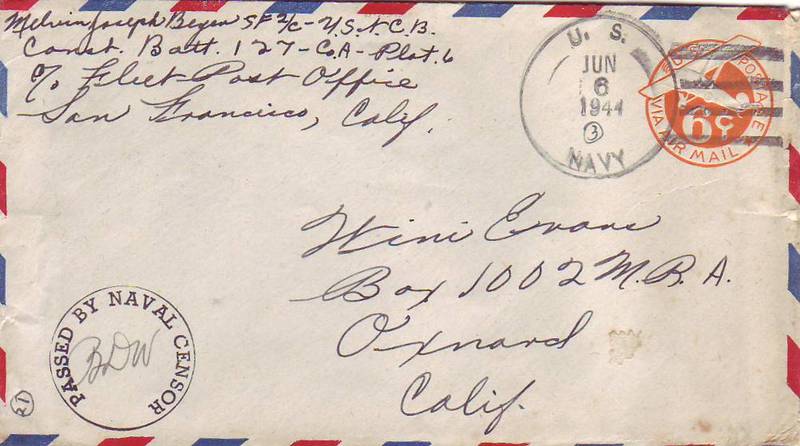 Melvin Joseph Beyen SF 2/c - U.S.N.C.B.
Const. Batt. 127 - Co.A - Plat. 6
c/o Fleet Post Office
San Francisco, Calif.
U. S.
JUN
6
1944
3
NAVY
U.S. POSTAGE
6¢
VIA AIR MAIL
Wini Evans
Box 1002 M.R.A.
Oxnard
Calif.
PASSED BY NAVAL CENSOR
BDW